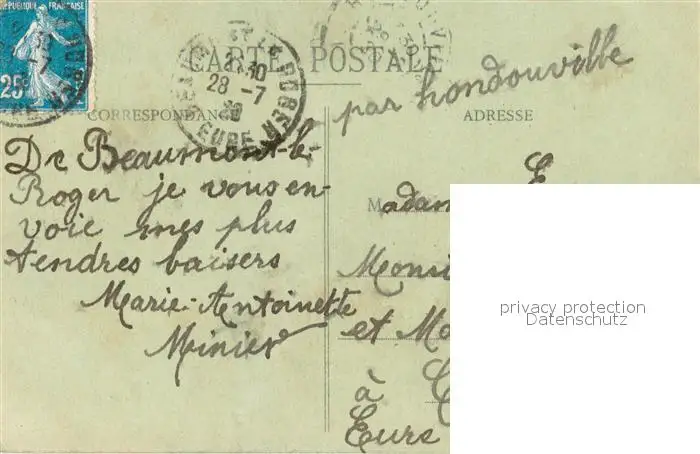 RÉPUBLIQUE FRANÇAISE
25c
CARTE POSTALE
30
28 -7
EURE
CORRESPONDANCE
ADRESSE
par hondouville
De Beaumont-le-
Roger je vous en-
voie mes plus
tendres baisers
Marie-Antoinette
Minier
Madam
Monsi
et Ma
à
Eure
privacy protection
Datenschutz